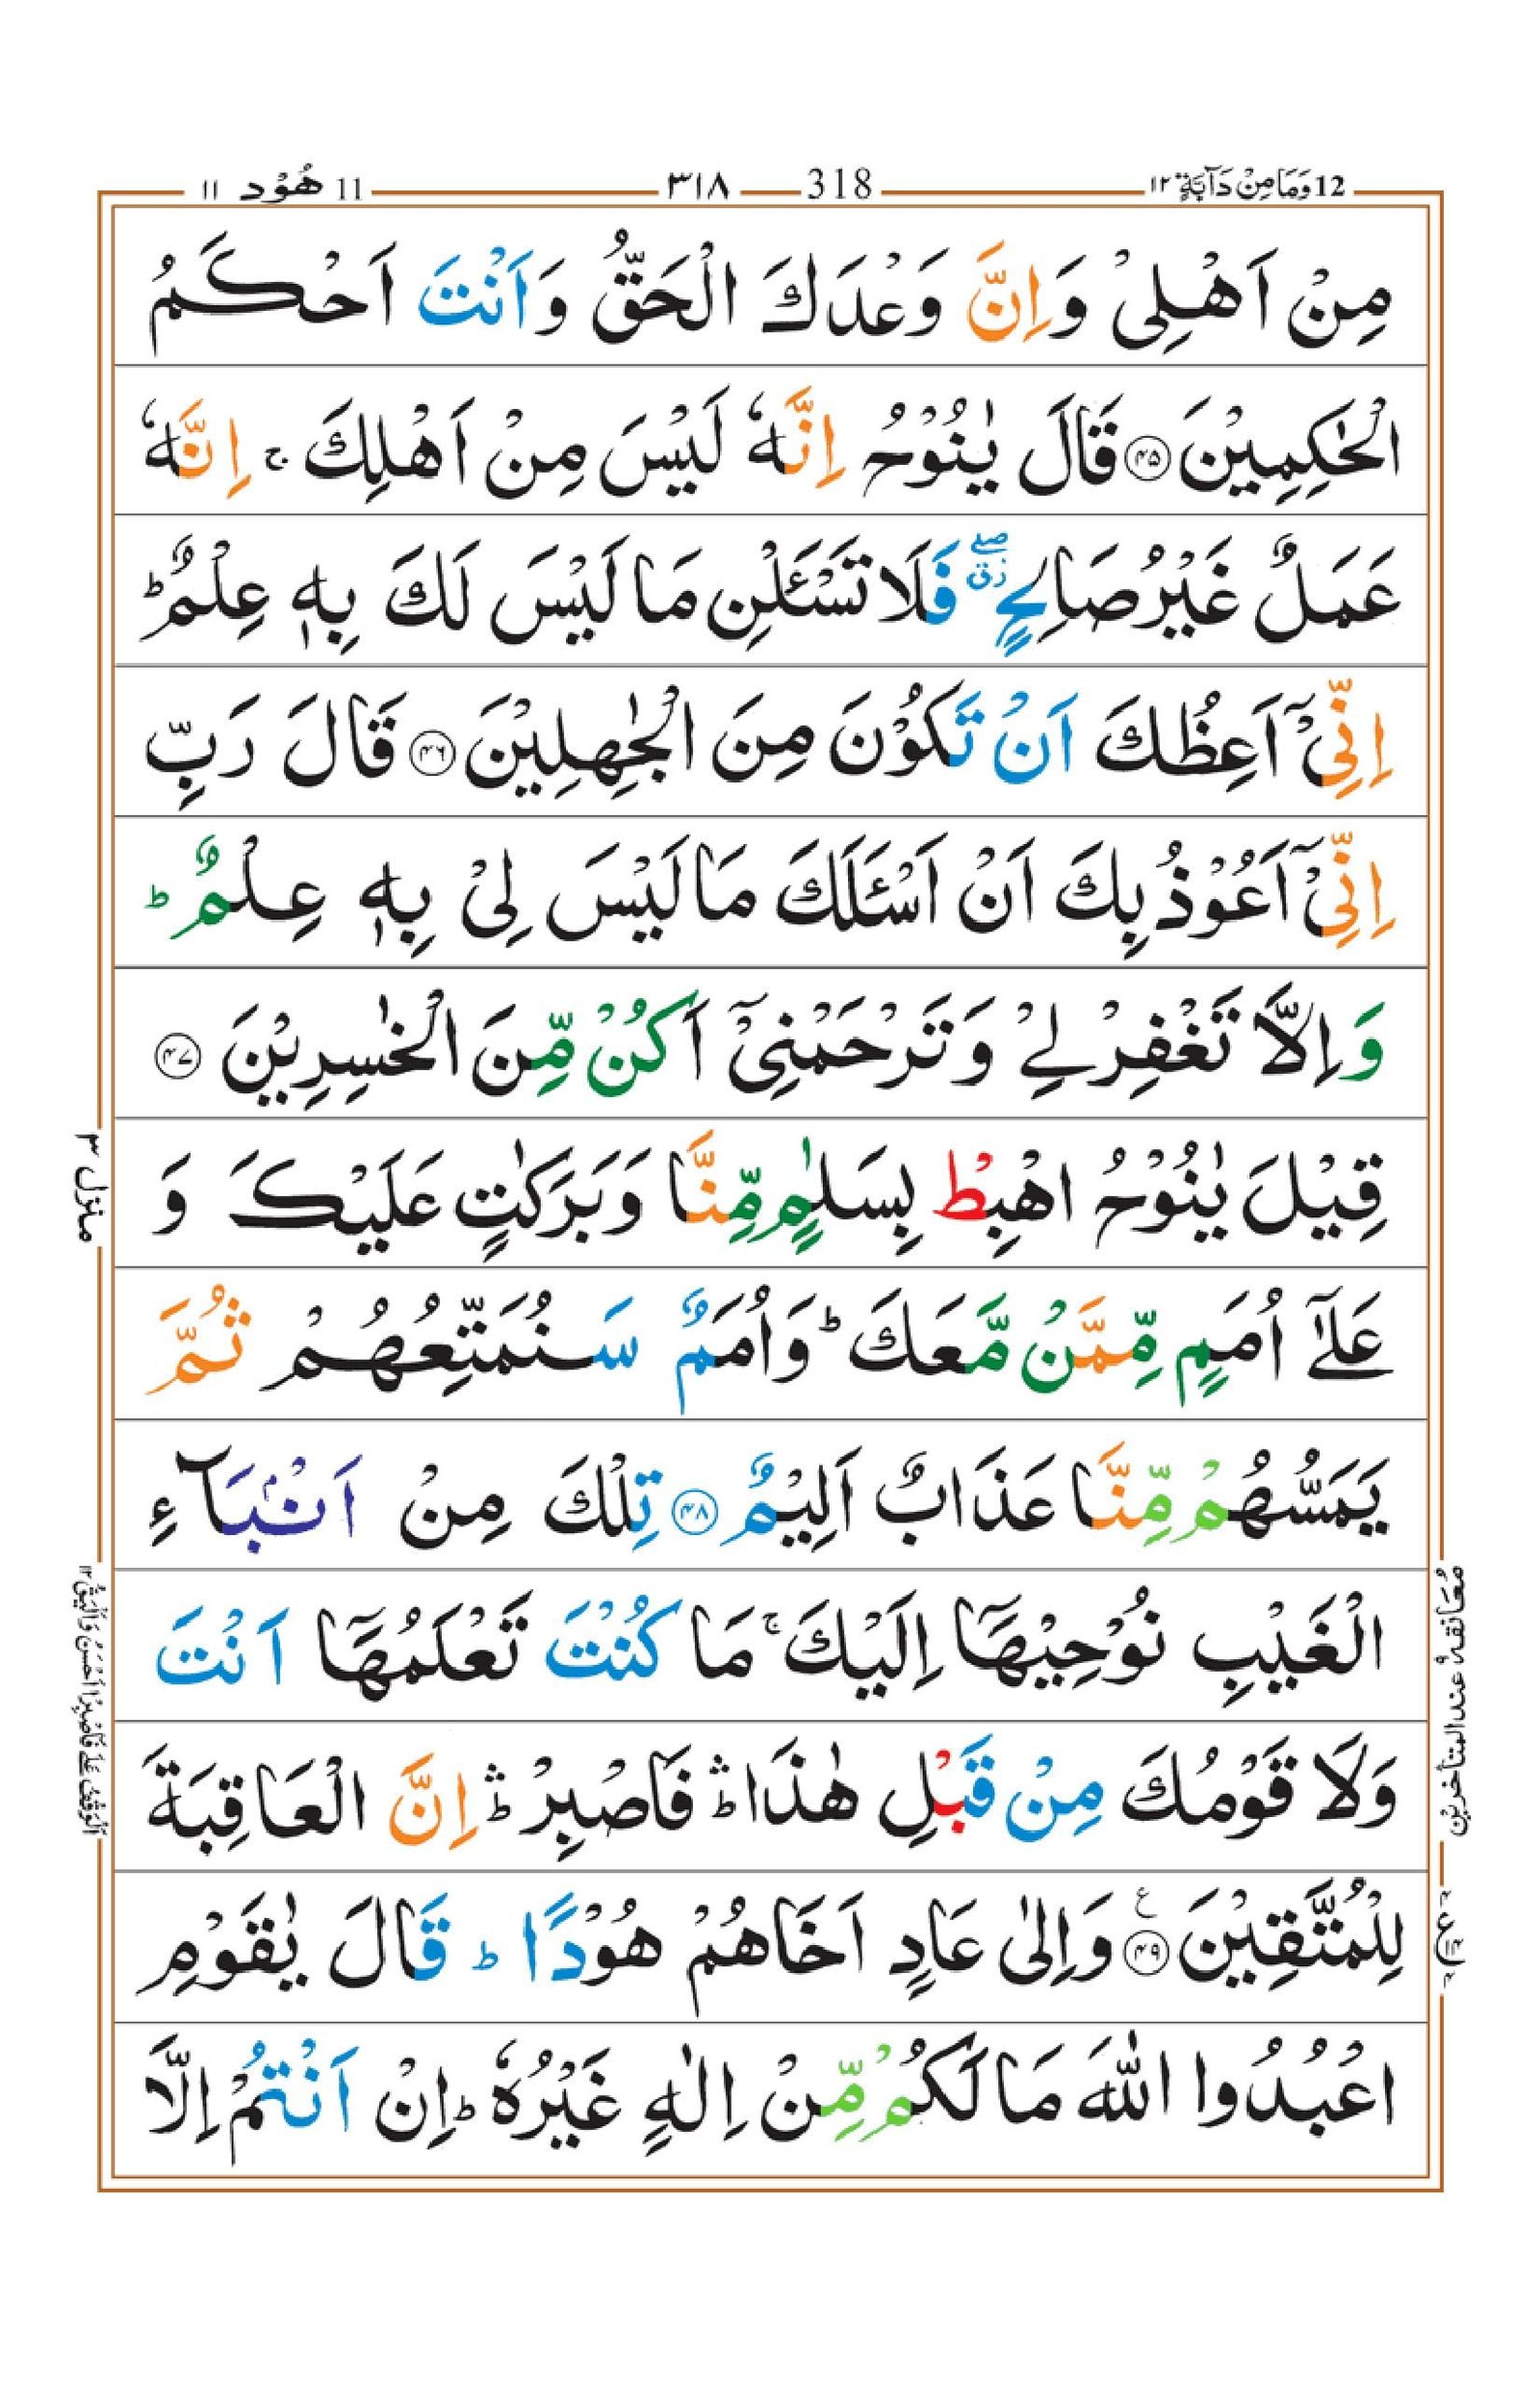 12 وَمَا مِنْ دَآبَّةٍ ۱۲
318 ۳۱۸
11 هُوْد ۱۱
مِنْ اَهْلِیْ وَاِنَّ وَعْدَكَ الْحَقُّ وَاَنْتَ اَحْكَمُ
الْحٰكِمِیْنَ ﴿۴۵﴾ قَالَ یٰنُوْحُ اِنَّهٗ لَیْسَ مِنْ اَهْلِكَ ۚ اِنَّهٗ
عَمَلٌ غَیْرُ صَالِحٍ ۖ٘ فَلَا تَسْـَٔلْنِ مَا لَیْسَ لَكَ بِهٖ عِلْمٌ ؕ
اِنِّیْۤ اَعِظُكَ اَنْ تَكُوْنَ مِنَ الْجٰهِلِیْنَ ﴿۴۶﴾ قَالَ رَبِّ
اِنِّیْۤ اَعُوْذُ بِكَ اَنْ اَسْـَٔلَكَ مَا لَیْسَ لِیْ بِهٖ عِلْمٌ ؕ
وَ اِلَّا تَغْفِرْ لِیْ وَ تَرْحَمْنِیْۤ اَكُنْ مِّنَ الْخٰسِرِیْنَ ﴿۴۷﴾
قِیْلَ یٰنُوْحُ اهْبِطْ بِسَلٰمٍ مِّنَّا وَ بَرَكٰتٍ عَلَیْكَ وَ
عَلٰۤی اُمَمٍ مِّمَّنْ مَّعَكَ ؕ وَ اُمَمٌ سَنُمَتِّعُهُمْ ثُمَّ
یَمَسُّهُمْ مِّنَّا عَذَابٌ اَلِیْمٌ ﴿۴۸﴾ تِلْكَ مِنْ اَنْۢبَآءِ
الْغَیْبِ نُوْحِیْهَاۤ اِلَیْكَ ۚ مَا كُنْتَ تَعْلَمُهَاۤ اَنْتَ
وَلَا قَوْمُكَ مِنْ قَبْلِ هٰذَا ۛؕ فَاصْبِرْ ۛؕ اِنَّ الْعَاقِبَةَ
لِلْمُتَّقِیْنَ ﴿۴۹﴾ ع وَاِلٰی عَادٍ اَخَاهُمْ هُوْدًا ؕ قَالَ یٰقَوْمِ
اعْبُدُوا اللّٰهَ مَا لَكُمْ مِّنْ اِلٰهٍ غَیْرُهٗ ؕ اِنْ اَنْتُمْ اِلَّا
منزل ۳
معانقه ۹ عند المتأخرین
اَلْوَقْفُ عَلٰی فَاصْبِرْ اَحْسَنُ وَاَلْیَقُ ۱۲